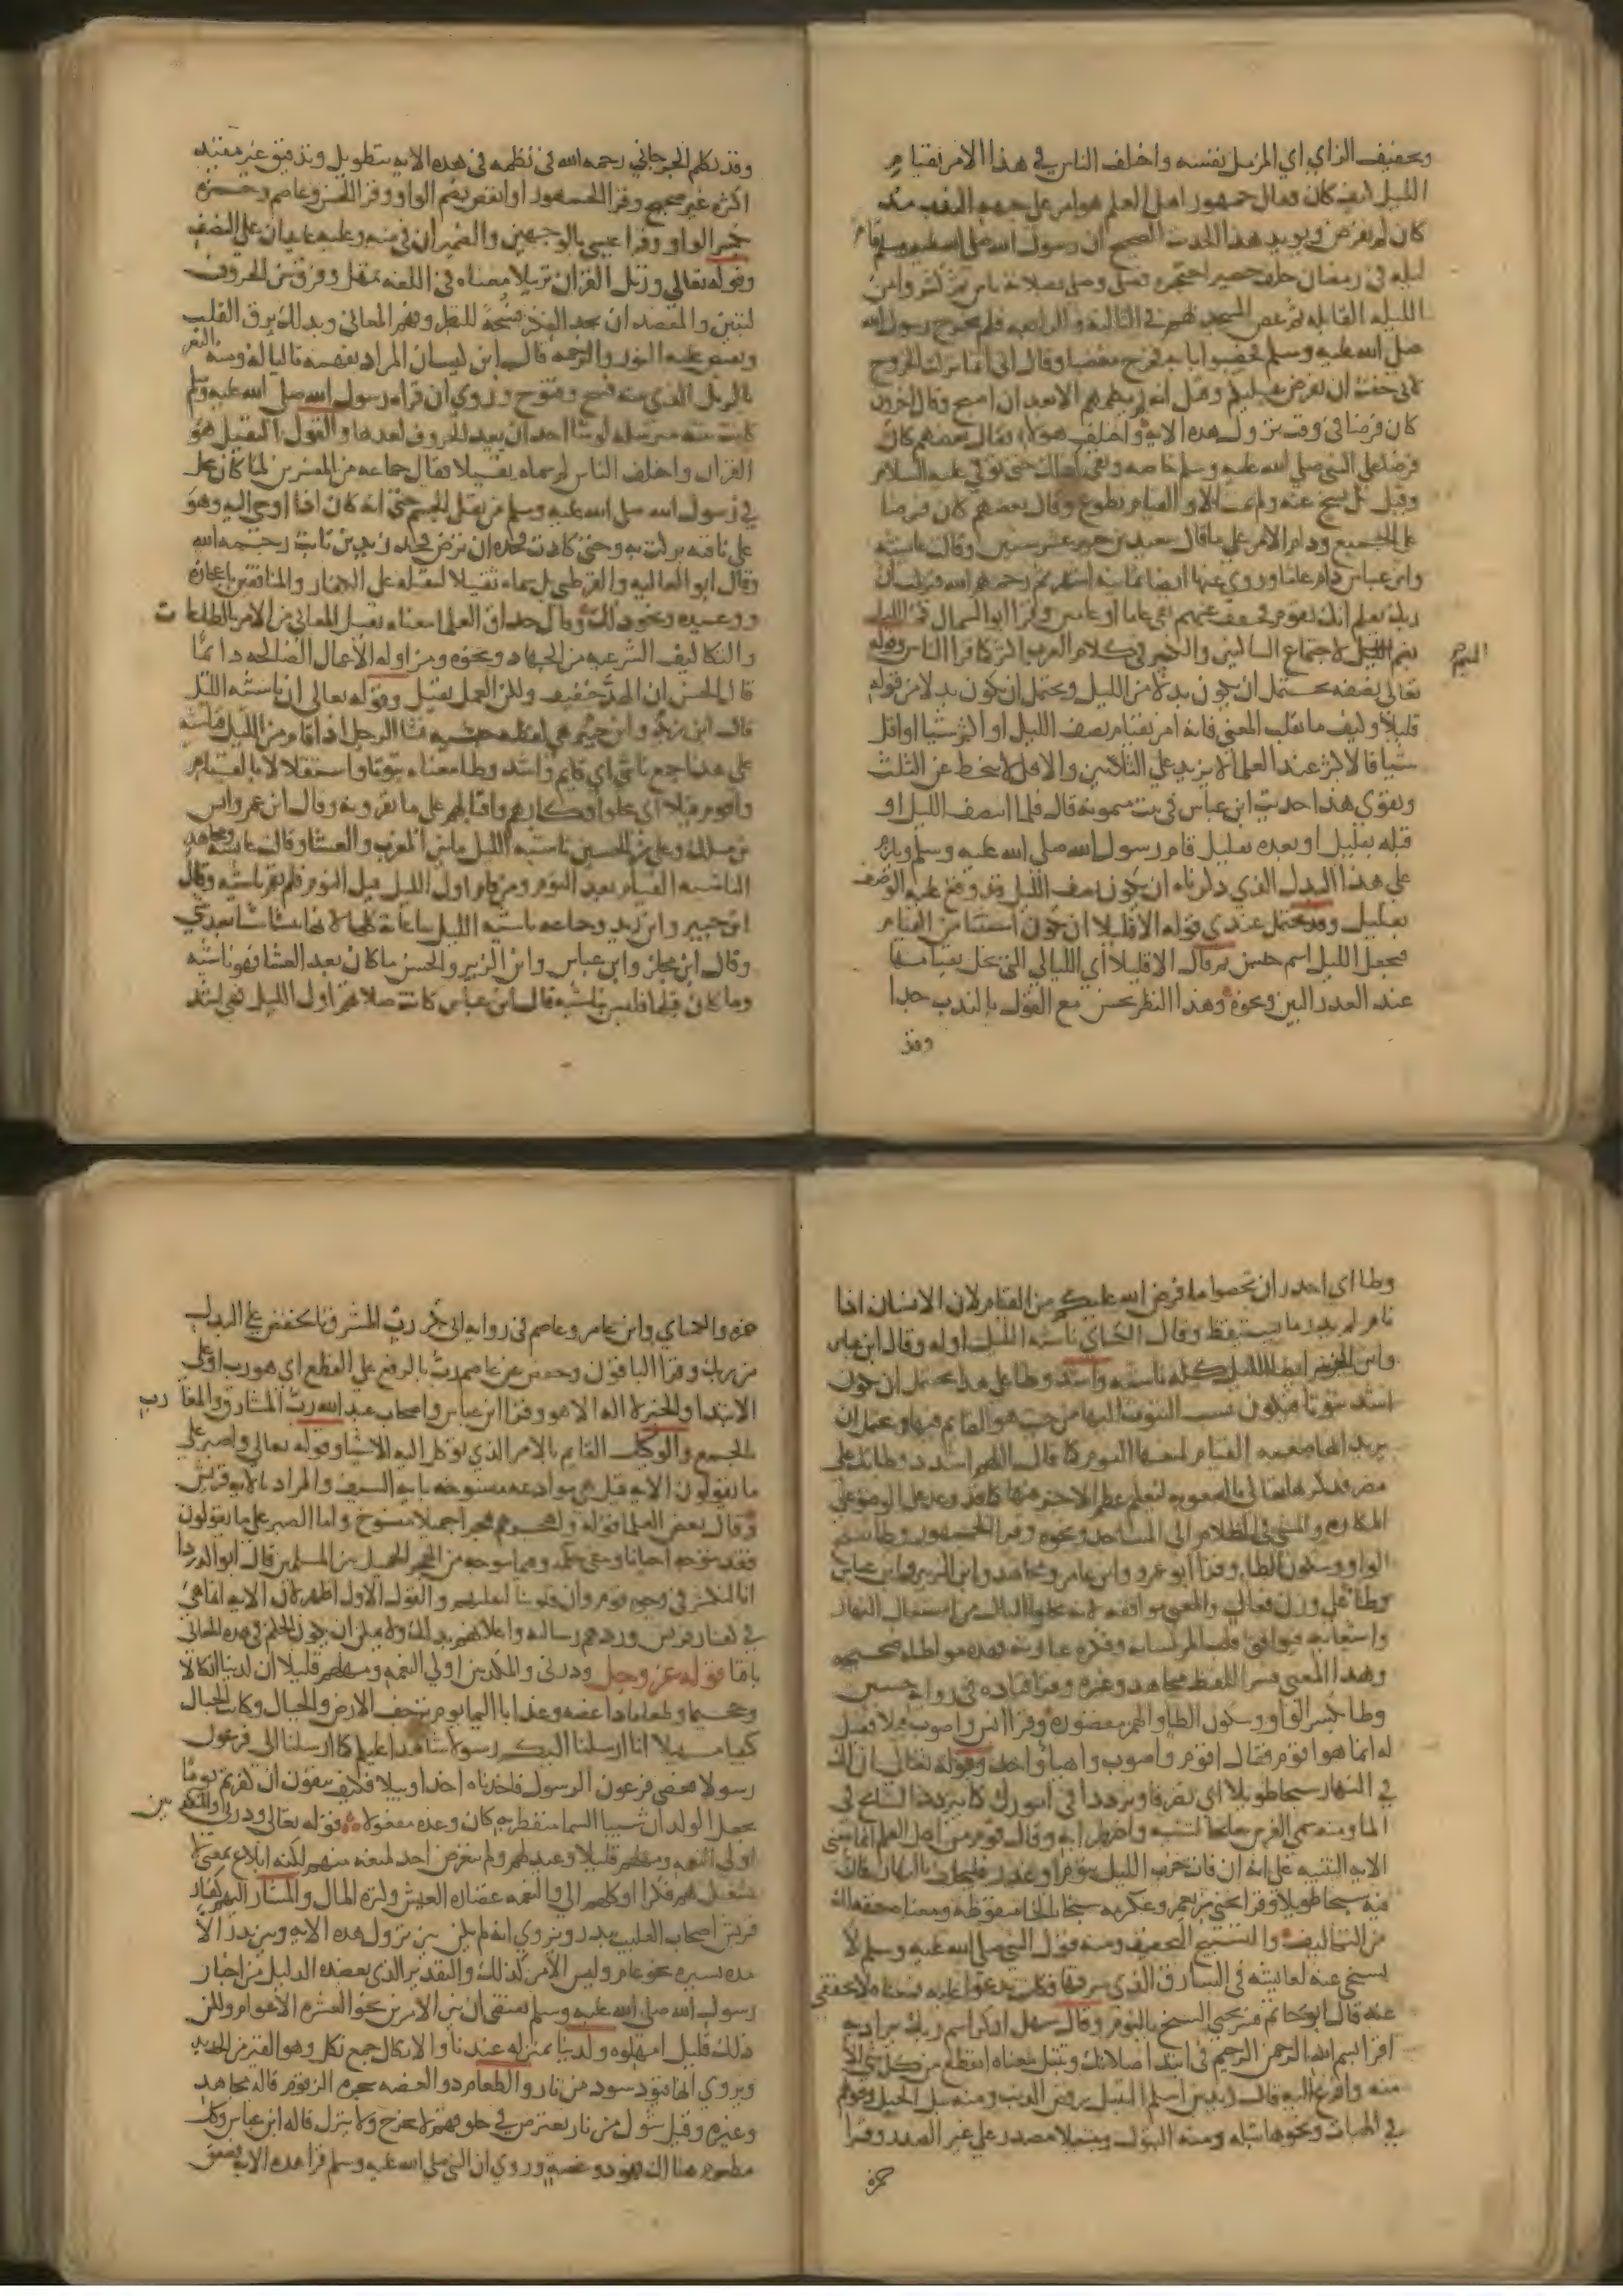 وتخفيف الزاي اي المزمل نفسه واختلف الناس في هذا الامر بقيام
الليل كيف كان فقال جمهور اهل العلم هو امر على جهة الندب مذ
كان لم يفرض ويويد هذا الحديث الصحيح ان رسول الله صلى الله عليه وسلم قام
ليله في رمضان خلف حصير احتجره فصلى وصلى بصلاته ناس ثم كثروا من
الليله القابله ثم غص المسجد بهم في الثالثه او الرابعه فلم يخرج رسول الله
صلى الله عليه وسلم فحصبوا بابه فخرج مغضبا وقال اني انما تركت الخروج
لاني خفت ان يفرض عليكم وقيل انه لم يكلمهم الا بعد ان اصبح وقال اخرون
كان فرضا في وقت نزول هذه الايه واختلف هولا فقال بعضهم كان
فرضا على النبي صلى الله عليه وسلم خاصه وبقي كذلك حتى توفي عليه السلام
وقيل بل نسخ عنه ولم يمت الا والقيام تطوع وقال بعضهم كان فرضا
على الجميع ودام الامر على ما قال سعيد بن جبير عشر سنين وقالت عايشه
وابن عباس دام عاما وروي عنها ايضا ثمانيه اشهر ثم رحمهم الله فنزلت ان
ربك يعلم انك تقوم فخفف عنهم بقي عاما او عامين وقرا ابو السمال قم الليل
بضم الميم لاجتماع الساكنين والكسر في كلام العرب اكثر كما قرا الناس وقوله
تعالى نصفه يحتمل ان يكون بدلا من الليل ويحتمل ان يكون بدلا من قوله
قليلا وكيف ما تقلب المعنى فانه امر بقيام نصف الليل او اكثر شيا او اقل
شيا فالاكثر عند العلما لا يزيد على الثلثين والاقل لا ينحط عن الثلث
ويقوي هذا حديث ابن عباس في بيت ميمونه قال فلما انتصف الليل او
قبله بقليل او بعده بقليل قام رسول الله صلى الله عليه وسلم ويلزم
على هذا البدل الذي ذكرناه ان يكون نصف الليل قد وقع عليه الوصف
بقليل وقد يحتمل عندي قوله الا قليلا ان يكون استثنا من القيام
فجعل الليل اسم جنس ثم قال الا قليلا اي الليالي التي تخل بقيامها
عند العذر البين ونحوه وهذا النظر يحسن مع القول بالندب جدا
وقد
وقد تكلم الجرجاني رحمه الله في نظمه في هذه الايه بتطويل وتدقيق غير مفيد
اكثره غير صحيح وقرا الجمهور او انقص بضم الواو وقرا الحسن وعاصم وحمزه
بكسر الواو وقرا عيسى بالوجهين والضميران في منه وعليه عايدان على النصف
وقوله تعالى ورتل القران ترتيلا معناه في اللغه تمهل وفرق بين الحروف
لتبين والمقصد ان يجد الفكر فسحة للنظر وفهم المعاني وبذلك يرق القلب
ويفيض عليه النور والرحمه قال ابن كيسان المراد تفهمه تاليا له ومنه الثغر
الرتل الذي بينه فسح وفتوح وروي ان قراه رسول الله صلى الله عليه وسلم
كانت بينه مترسله لو شا احد ان يعد الحروف لعدها والقول الثقيل هو
القران واختلف الناس لم سماه ثقيلا فقال جماعه من المفسرين لما كان يحل
في رسول الله صلى الله عليه وسلم من ثقل الجسم حتى انه كان اذا اوحي اليه وهو
على ناقته بركت به وحتى كادت فخذه ان ترض فخذ زيد بن ثابت رحمه الله
وقال ابو العاليه والقرظي بل سماه ثقيلا لثقله على الكفار والمنافقين باعجازه
ووعيده ونحو ذلك وقال حذاق العلما معناه ثقيل المعاني من الامر بالطاعات
والتكاليف الشرعيه من الجهاد ونحوه ومزاوله الاعمال الصالحه دايما
قال الحسن ان الهذ خفيف ولكن العمل ثقيل وقوله تعالى ان ناشئه الليل
قال ابن زيد وابن جبير هي لفظه حبشيه نشا الرجل اذا قام من الليل فناشيه
على هذا جمع ناشي اي قايم واشد وطا معناه ثبوتا واستقلالا بالقيام
واقوم قيلا اي بخلو افكارهم واقبالهم على ما يقرونه وقال ابن عمر وانس
بن مالك وعلي بن الحسين ناشيه الليل ما بين المغرب والعشا وقالت عايشه ومجاهد
الناشيه القيام بعد النوم ومن قام اول الليل قبل النوم فلم يقم ناشيه وقال
ابن جبير وابن زيد وجماعه ناشيه الليل ساعاته كلها لانها تنشا شيا بعد شي
وقال ابو مجلز وابن عباس وابن الزبير والحسن ما كان بعد العشا فهو ناشيه
وما كان قبلها فليس بناشيه قال ابن عباس كانت صلاتهم اول الليل فهي اشد
وطا اي اجدر ان تحصوا ما فرض الله عليكم من القيام لان الانسان اذا
نام لم يدر ما يستيقظ وقال الكساي ناشيه الليل اوله وقال ابن عباس
وابن الزبير ايضا الليل كله ناشيه واشد وطا على هذا يحتمل ان يكون
اشد ثبوتا فيكون نسب الثبوت اليها من حيث هو القايم فيها ويحتمل ان
يريد انها صعبه القيام لمنعها النوم كما قال اللهم اشدد وطاتك على
مضر فذكرها تعالى بالصعوبه ليعلم عظم الاجر فيها كما قد وعد على الوضو على
المكاره والمشي في الظلام الى المساجد ونحوه وقرا الجمهور وطا بفتح
الواو وسكون الطا وقرا ابو عمرو وابن عامر ومجاهد وابن الزبير وابن عباس
وطا على وزن فعال والمعنى موافقه لانه يخلو البال من اشتغال النهار
واشغابه فيوافق قلب المر لسانه وفكره عبارته فهذه مواطاه صحيحه
وهذا المعنى فسر اللفظ مجاهد وغيره وقرا قتاده في روايه حسين
وطا بكسر الواو وسكون الطا والهمز مقصوره وقرا انس واصوب قيلا فقيل
له انما هو اقوم فقال اقوم واصوب واهيا واحد وقوله تعالى ان لك
في النهار سبحا طويلا اي تصرفا وترددا في امورك كما يتردد السابح في
الما ومنه سمي الفرس سابحا لتثنيه واضطرابه وقال قوم من اهل العلم انما معنى
الايه التنبيه على انه ان فات حزب الليل بنوم او عذر فليخلف بالنهار فان
فيه سبحا طويلا وقرا يحيى بن يعمر وعكرمه سبخا بالخا منقوطه ومعناه خفه لك
من التكاليف والتسبيخ التخفيف ومنه قول النبي صلى الله عليه وسلم لا
تسبخي عنه لعايشه في السارق الذي سرقها فكانت تدعو عليه معناه لا تخففي
عنه قال ابو حاتم فسر يحيى السبخ بالنوم وقال سهل اذكر اسم ربك يراد به
اقرا بسم الله الرحمن الرحيم في ابتدا صلاتك وتبتل معناه انقطع من كل شي الا
منه وافرغ اليه قال زيد بن اسلم التبتل رفض الدنيا ومنه بتل الحبل وقولهم
في الهبات ونحوها بتله ومنه البتول وتبتيلا مصدر على غير الصدر وقرا
حمزه
حمزه والكساي وابن عامر وعاصم في روايه ابي بكر رب المشرق بالخفض على البدل
من ربك وقرا الباقون وحفص عن عاصم رب بالرفع على القطع اي هو رب او على
الابتدا والخبر لا اله الا هو وقرا ابن عباس واصحاب عبد الله رب المشارق والمغارب
بالجمع والوكيل القايم بالامر الذي توكل اليه الاشيا وقوله تعالى واصبر على
ما يقولون الايه قيل هي موادعه منسوخه بايه السيف والمراد بالايه قريش
وقال بعض العلما قوله واهجرهم هجرا جميلا منسوخ واما الصبر على ما يقولون
فقد يتوجه احيانا ويبقى حكمه وفيما يتوجه من الهجر الجميل من المسلمين قال ابو الدردا
انا لنكشر في وجوه قوم وان قلوبنا لتلعنهم والقول الاول اظهر لان الايه انما هي
في كفار قريش وردهم رسالته واعلانهم بذلك ولا يمكن ان يكون الحكم في هذه المعاني
باقيا قوله عز وجل وذرني والمكذبين اولي النعمه ومهلهم قليلا ان لدينا انكالا
وجحيما وطعاما ذا غصه وعذابا اليما يوم ترجف الارض والجبال وكانت الجبال
كثيبا مهيلا انا ارسلنا اليكم رسولا شاهدا عليكم كما ارسلنا الى فرعون
رسولا فعصى فرعون الرسول فاخذناه اخذا وبيلا فكيف تتقون ان كفرتم يوما
يجعل الولدان شيبا السما منفطر به كان وعده مفعولا قوله تعالى وذرني والمكذبين
اولي النعمه ومهلهم قليلا وعيد لهم ولم يتعرض احد لمنعه منهم لكنه ابلاغ بمعنى لا
تشغل بهم فكرا وكلهم الي والنعمه غضاره العيش وكثره المال والمشار اليهم كفار
قريش اصحاب القليب ببدر ويروى انه لم يكن بين نزول هذه الايه وبين بدر الا
مده يسيره نحو عام وليس الامر كذلك والتقدير الذي يعضده الدليل من اخبار
رسول الله صلى الله عليه وسلم يقتضي ان بين الامرين نحو العشره الاعوام ولكن
ذلك قليل امهلوه ولدينا بمنزله عندنا والانكال جمع نكل وهو القيد من الحديد
ويروى انها قيود سود من نار والطعام ذو الغصه شجره الزقوم قاله مجاهد
وغيره وقيل شوك من نار يعترض في حلوقهم لا يخرج ولا ينزل قاله ابن عباس وكل
مطعوم هنالك فهو ذو غصه وروي ان النبي صلى الله عليه وسلم قرا هذه الايه فصعق